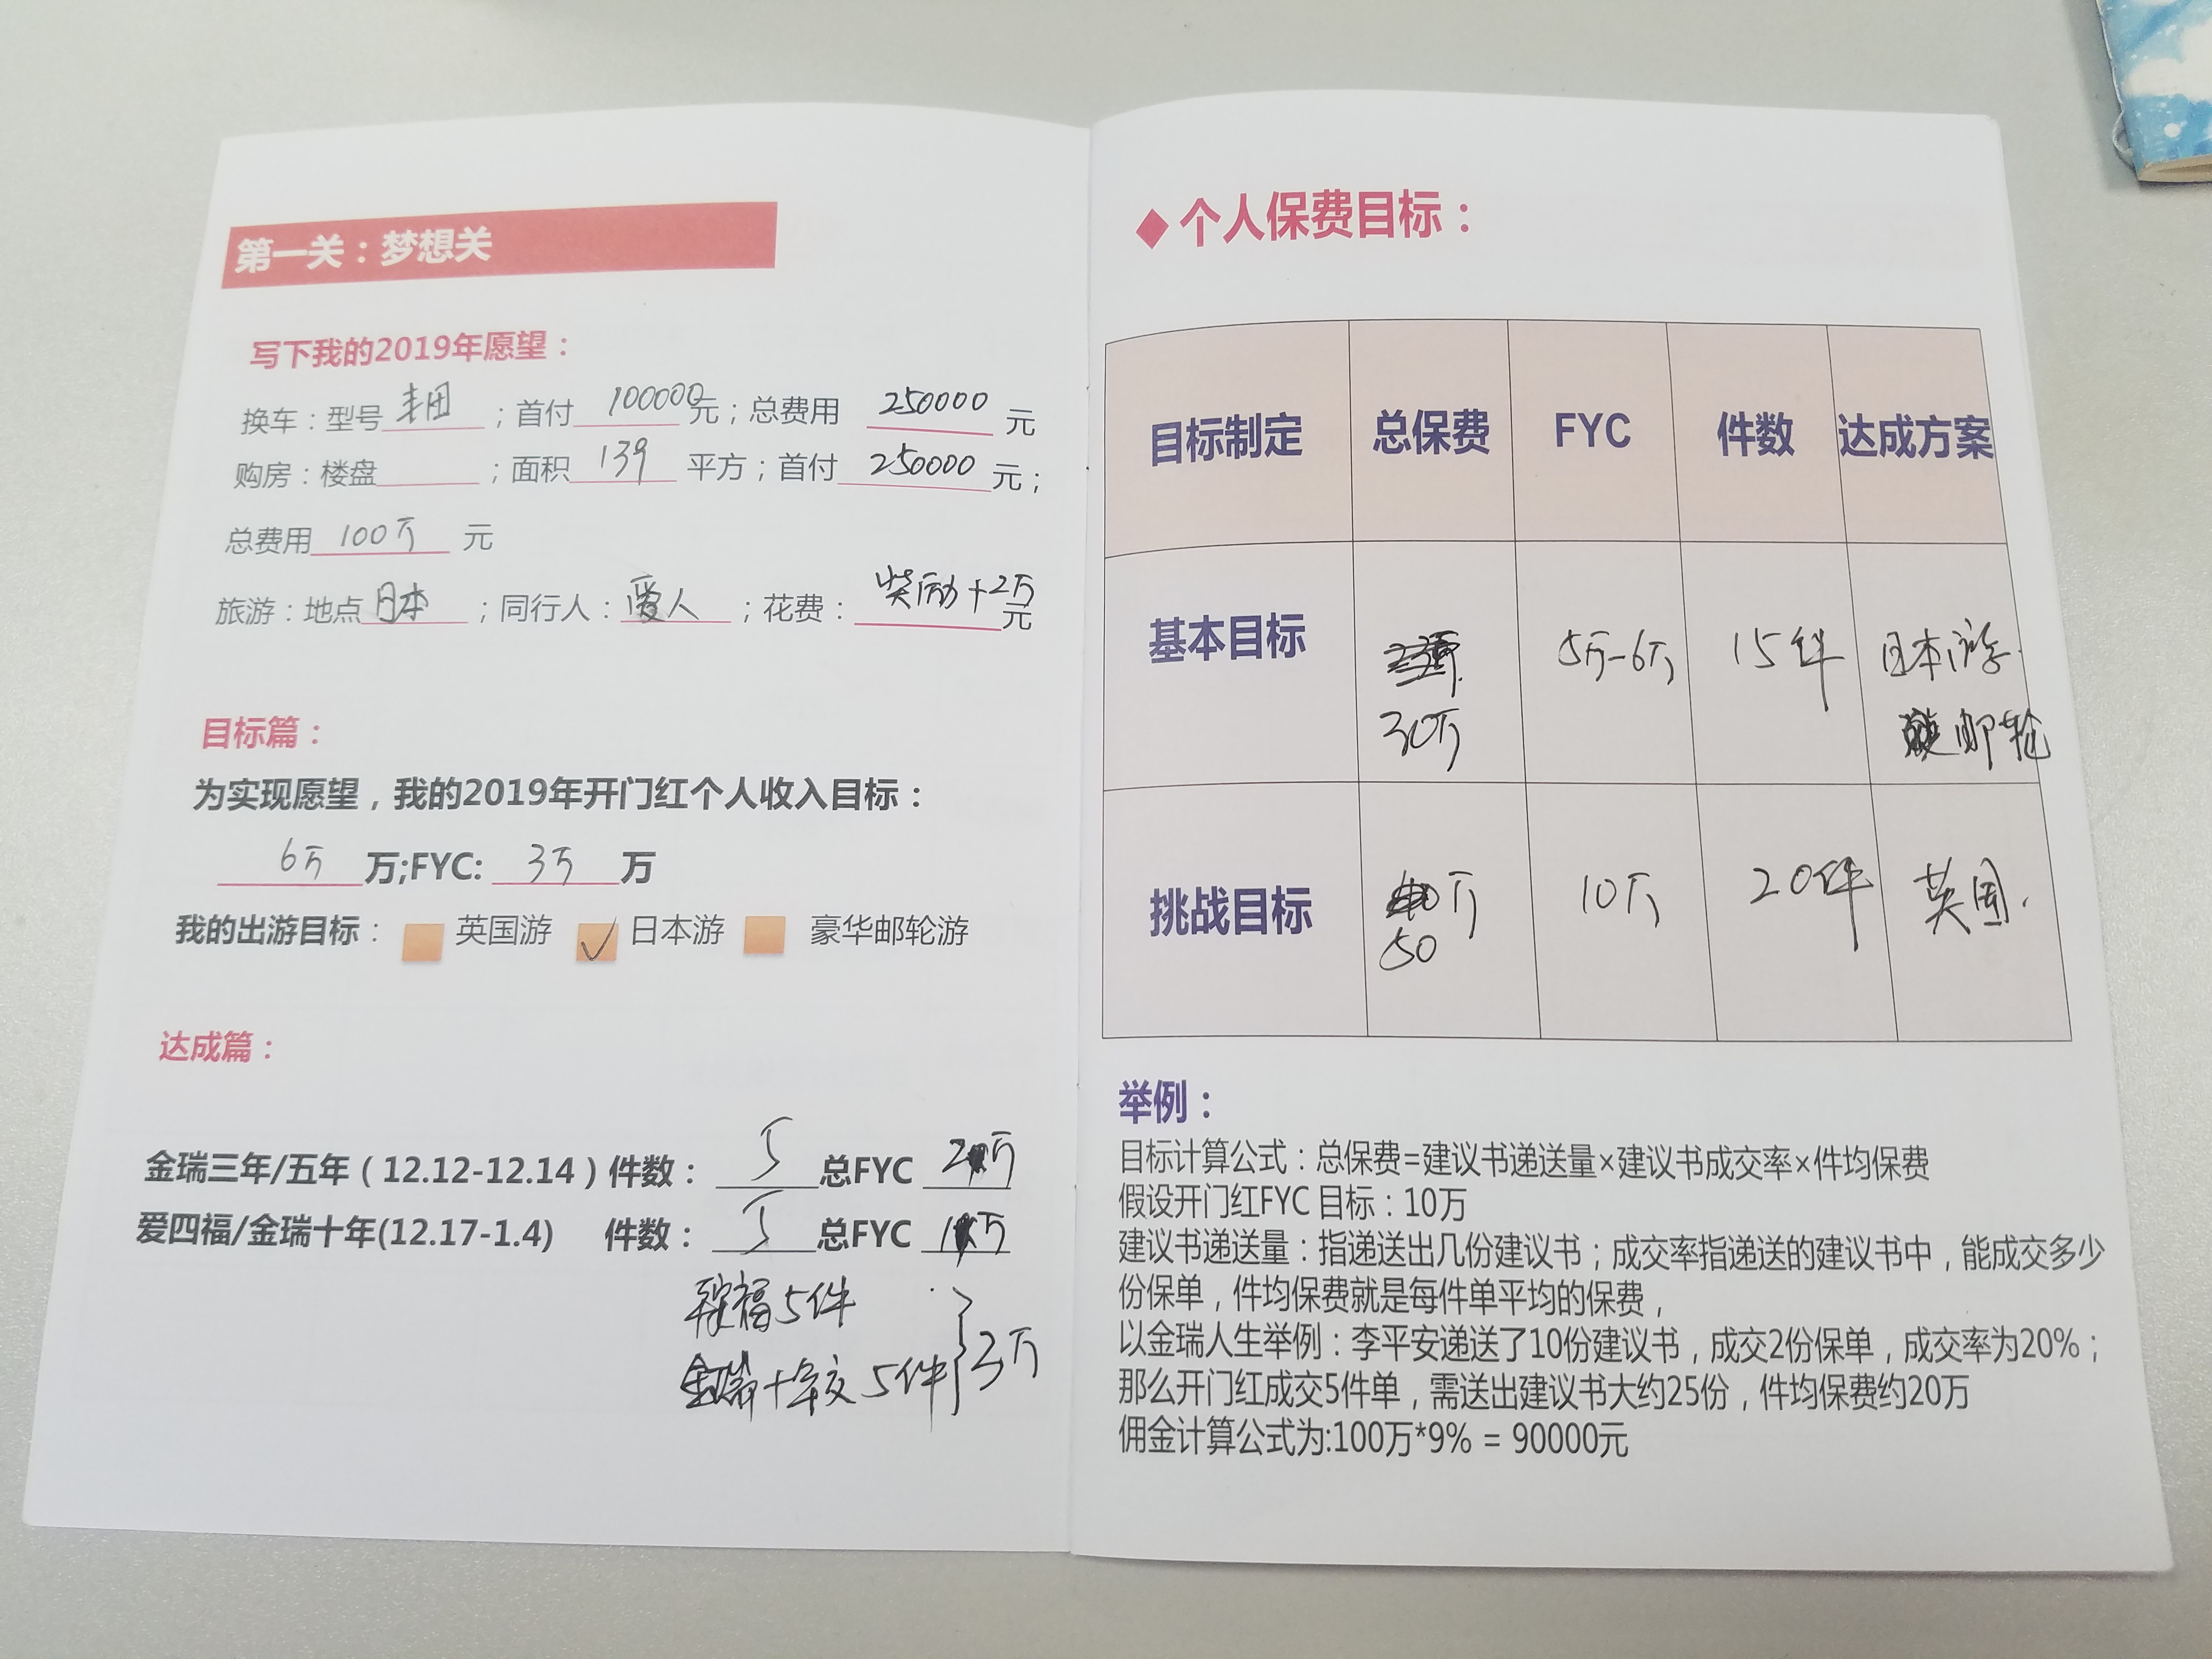 第一关：梦想关
写下我的2019年愿望：
换车：型号丰田；首付100000元；总费用250000元
购房：楼盘；面积139平方；首付250000元；
总费用100万元
旅游：地点日本；同行人：爱人；花费：奖励+2万元
目标篇：
为实现愿望，我的2019年开门红个人收入目标：
6万万;FYC:3万万
我的出游目标：英国游 ✓日本游 豪华邮轮游
达成篇：
金瑞三年/五年（12.12-12.14）件数：5总FYC 2万
爱四福/金瑞十年(12.17-1.4) 件数：5总FYC 1万
福5件
金瑞十年交5件 }3万
◆个人保费目标：
目标制定 总保费 FYC 件数 达成方案
基本目标 30万 5万-6万 15件 日本游. 邮轮
挑战目标 万 50 10万 20件 英国.
举例：
目标计算公式：总保费=建议书递送量×建议书成交率×件均保费
假设开门红FYC 目标：10万
建议书递送量：指递送出几份建议书；成交率指递送的建议书中，能成交多少
份保单，件均保费就是每件单平均的保费，
以金瑞人生举例：李平安递送了10份建议书，成交2份保单，成交率为20%；
那么开门红成交5件单，需送出建议书大约25份，件均保费约20万
佣金计算公式为:100万*9% = 90000元